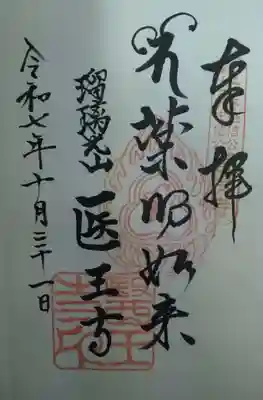 奉拝
薬師如来
瑠璃光山 医王寺
令和七年十月三十一日